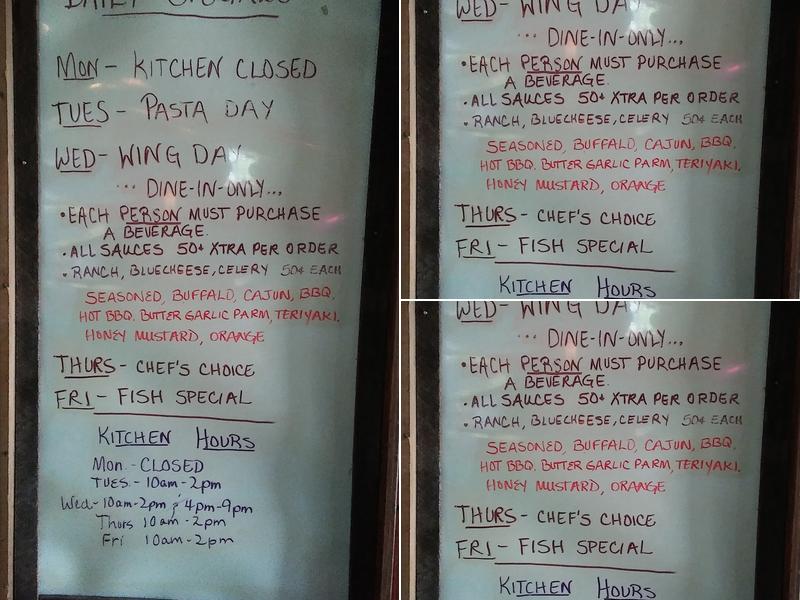 DAILY SPECIALS
MON - KITCHEN CLOSED
TUES - PASTA DAY
WED - WING DAY
... DINE-IN-ONLY...
• EACH PERSON MUST PURCHASE
A BEVERAGE.
• ALL SAUCES 50¢ XTRA PER ORDER
• RANCH, BLUECHEESE, CELERY 50¢ EACH
SEASONED, BUFFALO, CAJUN, BBQ.
HOT BBQ. BUTTER GARLIC PARM, TERIYAKI.
HONEY MUSTARD, ORANGE
THURS - CHEF'S CHOICE
FRI - FISH SPECIAL
KITCHEN HOURS
Mon. - CLOSED
TUES. - 10am - 2pm
Wed - 10am-2pm & 4pm-9pm
Thurs 10am - 2pm
Fri 10am - 2pm
WED - WING DAY
... DINE-IN-ONLY...
• EACH PERSON MUST PURCHASE
A BEVERAGE.
• ALL SAUCES 50¢ XTRA PER ORDER
• RANCH, BLUECHEESE, CELERY 50¢ EACH
SEASONED, BUFFALO, CAJUN, BBQ.
HOT BBQ. BUTTER GARLIC PARM, TERIYAKI.
HONEY MUSTARD, ORANGE
THURS - CHEF'S CHOICE
FRI - FISH SPECIAL
KITCHEN HOURS
WED - WING DAY
... DINE-IN-ONLY...
• EACH PERSON MUST PURCHASE
A BEVERAGE.
• ALL SAUCES 50¢ XTRA PER ORDER
• RANCH, BLUECHEESE, CELERY 50¢ EACH
SEASONED, BUFFALO, CAJUN, BBQ.
HOT BBQ. BUTTER GARLIC PARM, TERIYAKI.
HONEY MUSTARD, ORANGE
THURS - CHEF'S CHOICE
FRI - FISH SPECIAL
KITCHEN HOURS